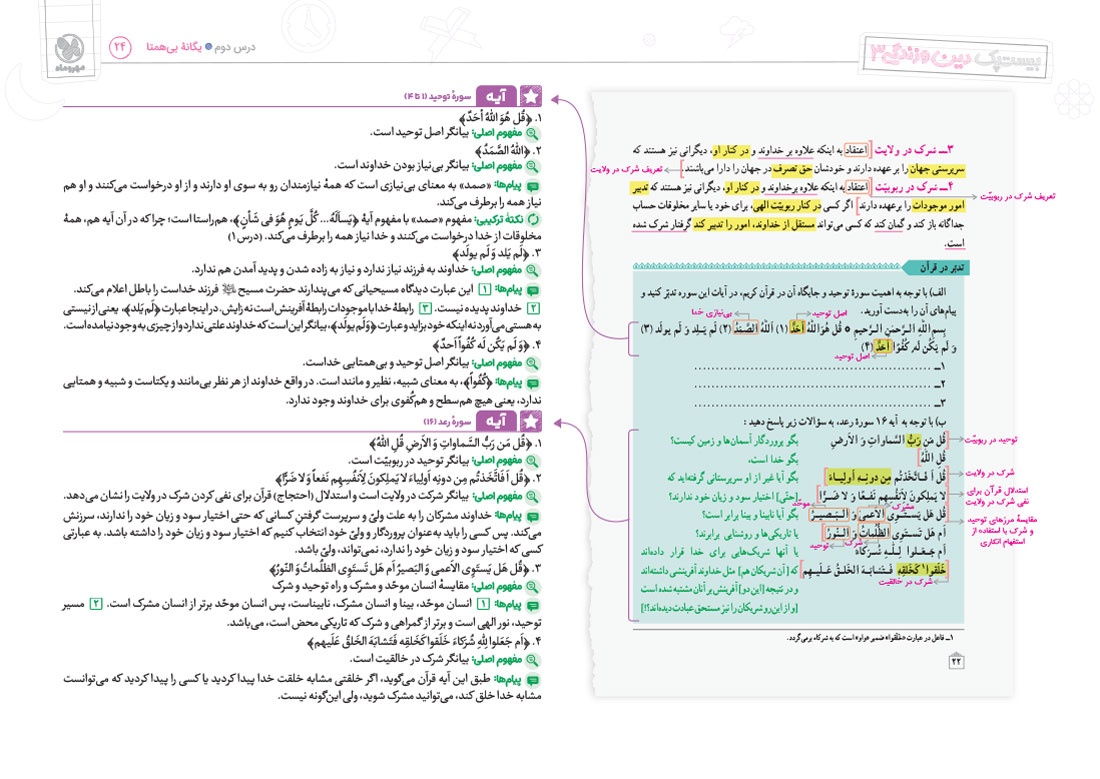 بیست‌پک دین و زندگی ۳
درس دوم • یگانهٔ بی‌همتا ۲۴
مهروماه
۳ــ شرک در ولایت [اعتقاد به اینکه علاوه بر خداوند و در کنار او، دیگرانی نیز هستند که
سرپرستی جهان را بر عهده دارند و خودشان حق تصرف در جهان را دارا می‌باشند.]
تعریف شرک در ولایت
۴ــ شرک در ربوبیّت [اعتقاد به اینکه علاوه برخداوند و در کنار او، دیگرانی نیز هستند که تدبیر
امور موجودات را برعهده دارند] اگر کسی در کنار ربوبیّت الهی، برای خود یا سایر مخلوقات حساب
تعریف شرک در ربوبیّت
جداگانه باز کند و گمان کند که کسی می‌تواند مستقل از خداوند، امور را تدبیر کند گرفتار شرک شده
است.
تدبّر در قرآن
الف) با توجه به اهمیت سورهٔ توحید و جایگاه آن در قرآن کریم، در آیات این سوره تدبّر کنید و
پیام‌های آن را به‌دست آورید.
اصل توحید
بی‌نیازی خدا
بِسمِ اللّٰهِ الرَّحمٰنِ الرَّحیمِ ٥ قُل هُوَ اللّٰهُ اَحَدٌ (۱) اَللّٰهُ الصَّمَدُ (۲) لَم یَـلِد وَ لَم یولَد (۳)
وَ لَم یَکُن لَه کُفُوًا اَحَدٌ (۴)
اصل توحید
۱ــ ............................................
۲ــ ............................................
۳ــ ............................................
ب) با توجه به آیه ۱۶ سورهٔ رعد، به سؤالات زیر پاسخ دهید :
قُل مَن رَبُّ السَّماواتِ وَ الاَرضِ
بگو پروردگار آسمان‌ها و زمین کیست؟
توحید در ربوبیّت
قُلِ اللّٰهُ
بگو خدا است،
قُل اَ فَـاتَّخَذتُم مِن دونِـهِ اَولِیـاءَ
بگو آیا غیر از او سرپرستانی گرفته‌اید که
شرک در ولایت
لا یَملِکونَ لِاَنفُسِهِم نَـفعًـا وَ لا ضَـرًّا
[حتی] اختیار سود و زیان خود ندارند؟
استدلال قرآن برای
نفی شرک در ولایت
مشرک
موحّد
قُل هَل یَستَـوِی الاَعمیٰ وَ الـبَـصیـرُ
بگو آیا نابینا و بینا برابر است؟
مقایسهٔ مرزهای توحید
و شرک با استفاده از
استفهام انکاری
اَم هَل تَستَوِی الظُّلُماتُ وَ الـنّورُ
یا تاریکی‌ها و روشنایی برابرند؟
شرک
توحید
اَم جَـعَـلوا لِـلّٰـهِ شُـرَکاءَ
یا آنها شریک‌هایی برای خدا قرار داده‌اند
خَلَقوا۱ کَخَلقِهِ فَـتَشابَـهَ الخَـلقُ عَلَـیـهِـم
که [آن شریکان هم] مثل خداوند آفرینشی داشته‌اند
شرک در خالقیت
و در نتیجه [این دو] آفرینش بر آنان مشتبه شده است
[و از این رو شریکان را نیز مستحق عبادت دیده‌اند؟!]
۱ــ فاعل در عبارت «خَلَقوا» ضمیر «واو» است که به شرکاء برمی‌گردد.
۲۲
آیه سورهٔ توحید (۱ تا ۴)
۱. ﴿قُل هُوَ اللّٰهُ اَحَدٌ﴾
مفهوم اصلی: بیانگر اصل توحید است.
۲. ﴿اَللّٰهُ الصَّمَدُ﴾
مفهوم اصلی: بیانگر بی‌نیاز بودن خداوند است.
پیام‌ها: «صمد» به معنای بی‌نیازی است که همهٔ نیازمندان رو به سوی او دارند و از او درخواست می‌کنند و او هم
نیاز همه را برطرف می‌کند.
نکتهٔ ترکیبی: مفهوم «صمد» با مفهوم آیهٔ ﴿یَسأَلُهُ... کُلَّ یَومٍ هُوَ فی شَأنٍ﴾، هم‌راستا است؛ چرا که در آن آیه هم، همهٔ
مخلوقات از خدا درخواست می‌کنند و خدا نیاز همه را برطرف می‌کند. (درس ۱)
۳. ﴿لَم یَلِد وَ لَم یولَد﴾
مفهوم اصلی: خداوند به فرزند نیاز ندارد و نیاز به زاده شدن و پدید آمدن هم ندارد.
پیام‌ها: ۱ این عبارت دیدگاه مسیحیانی که می‌پندارند حضرت مسیح فرزند خداست را باطل اعلام می‌کند.
۲ خداوند پدیده نیست. ۳ رابطهٔ خدا با موجودات رابطهٔ آفرینش است نه زایش. در اینجا عبارت ﴿لَم یَلِد﴾، یعنی از نیستی
به هستی می‌آورد نه اینکه خود بزاید و عبارت ﴿وَ لَم یولَد﴾، بیانگر این است که خداوند علتی ندارد و از چیزی به وجود نیامده است.
۴. ﴿وَ لَم یَکُن لَه کُفُواً اَحدٌ﴾
مفهوم اصلی: بیانگر اصل توحید و بی‌همتایی خداست.
پیام‌ها: ﴿کُفُواً﴾، به معنای شبیه، نظیر و مانند است. در واقع خداوند از هر نظر بی‌مانند و یکتاست و شبیه و همتایی
ندارد، یعنی هیچ هم‌سطح و هم‌کُفوی برای خداوند وجود ندارد.
آیه سورهٔ رعد (۱۶)
۱. ﴿قُل مَن رَبُّ السَّماواتِ وَ الاَرضِ قُلِ اللّٰهُ﴾
مفهوم اصلی: بیانگر توحید در ربوبیّت است.
۲. ﴿قُل اَ فَاتَّخَذتُم مِن دونِهِ اَولیاءَ لا یَملِکونَ لِاَنفُسِهِم نَفعاً وَ لا ضَرًّا﴾
مفهوم اصلی: بیانگر شرکت در ولایت است و استدلال (احتجاج) قرآن برای نفی کردن شرک در ولایت را نشان می‌دهد.
پیام‌ها: خداوند مشرکان را به علت ولیّ و سرپرست گرفتنِ کسانی که حتی اختیار سود و زیان خود را ندارند، سرزنش
می‌کند. پس کسی را باید به‌عنوان پروردگار و ولیّ خود انتخاب کنیم که اختیار سود و زیان خود را داشته باشد. به عبارتی
کسی که اختیار سود و زیان خود را ندارد، نمی‌تواند، ولیّ باشد.
۳. ﴿قُل هَل یَستَوِی الاَعمی وَ البَصیرُ اَم هَل تَستَوِی الظُّلُماتُ وَ النّورُ﴾
مفهوم اصلی: مقایسهٔ انسان موحّد و مشرک و راه توحید و شرک
پیام‌ها: ۱ انسان موحّد، بینا و انسان مشرک، نابیناست، پس انسان موحّد برتر از انسان مشرک است. ۲ مسیر
توحید، نور الهی است و برتر از گمراهی و شرک که تاریکی محض است، می‌باشد.
۴. ﴿اَم جَعَلوا لِلّٰهِ شُرَکاءَ خَلَقوا کَخَلقِهِ فَتَشابَهَ الخَلقُ عَلَیهِم﴾
مفهوم اصلی: بیانگر شرک در خالقیت است.
پیام‌ها: طبق این آیه قرآن می‌گوید، اگر خلقتی مشابه خلقت خدا پیدا کردید یا کسی را پیدا کردید که می‌توانست
مشابه خدا خلق کند، می‌توانید مشرک شوید، ولی این‌گونه نیست.